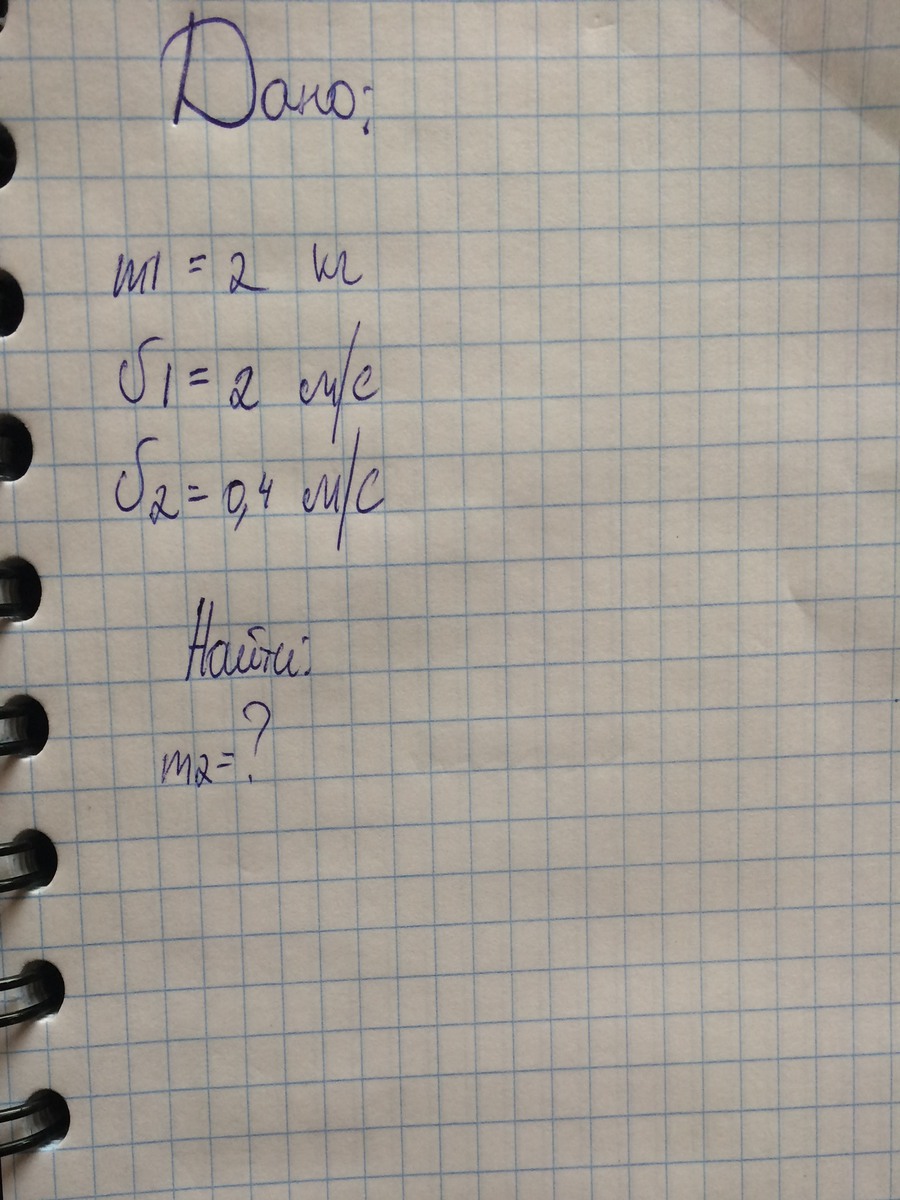 Дано:
m1 = 2 кг
υ1 = 2 м/с
υ2 = 0,4 м/с
Найти:
m2 = ?